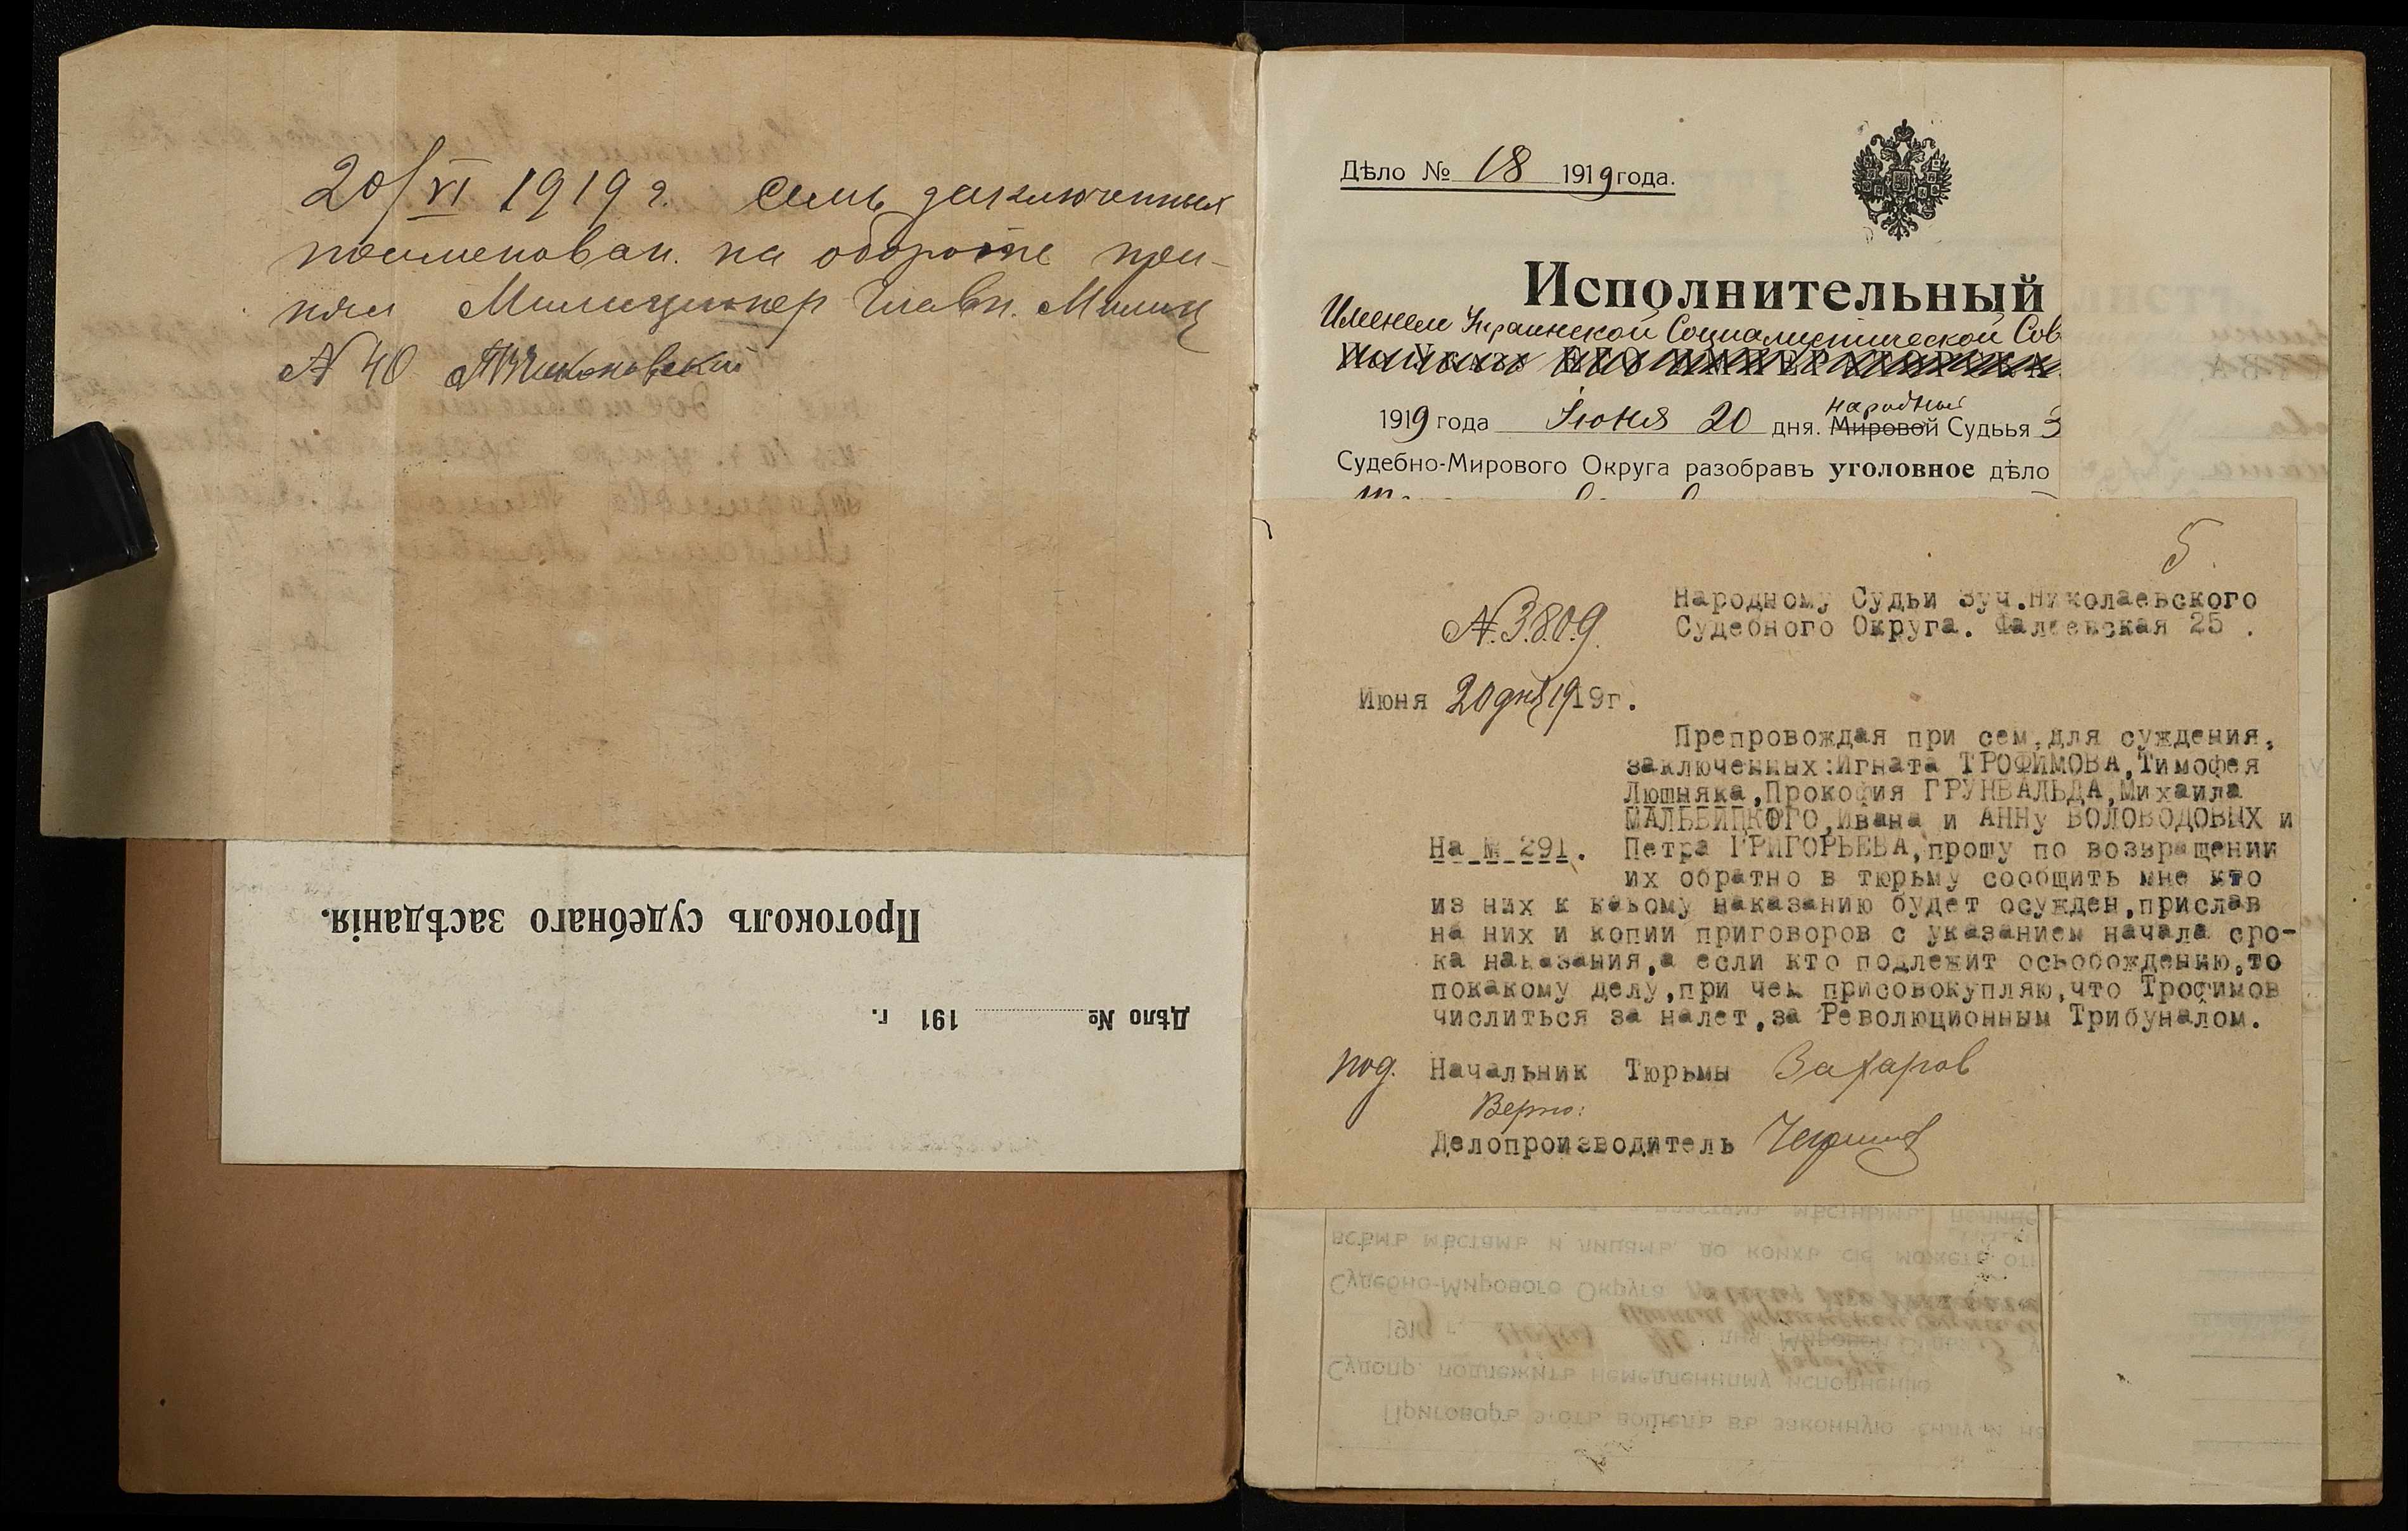 20/VI 1919 г. Семь заключенных
поименован. на обороте при-
нял Милиционер Главн. Милиц
№ 40
Протоколъ судебнаго засѣданія.
Дѣло № 191 г.
Дѣло № 18 1919 года.
Исполнительный
Именем Украинской Социалистической Сов
1919 года Іюня 20 дня. народный Мировой Судья 3
Судебно-Мирового Округа разобравъ уголовное дѣло
5
№ 3809.
Народному Судьи 3уч.Николаевского
Судебного Округа. Фалеевская 25 .
Июня 20 дня 1919г.
Препровождая при сем,для суждения,
заключенных:Игната ТРОФИМОВА,Тимофея
Люшняка,Прокофия ГРУНВАЛЬДА,Михаила
МАЛЬВИЦКОГО,Ивана и АННу ВОЛОВОДОВЫХ и
На № 291. Петра ГРИГОРЬЕВА,прошу по возвращении
их обратно в тюрьму сообщить мне кто
из них к какому наказанию будет осужден,прислав
на них и копии приговоров с указанием начала сро-
ка наказания,а если кто подлежит освобождению,то
покакому делу,при чем присовокупляю,что Трофимов
числиться за налет,за Революционным Трибуналом.
под. Начальник Тюрьмы Захаров
Верно:
Делопроизводитель
всѣмъ мѣстамъ и лицамъ, до коихъ сіе можетъ от
Судебно-Мирового Округа
Судопр. подлежитъ немедленному исполненію
Приговоръ этотъ вошелъ въ законную силу и на